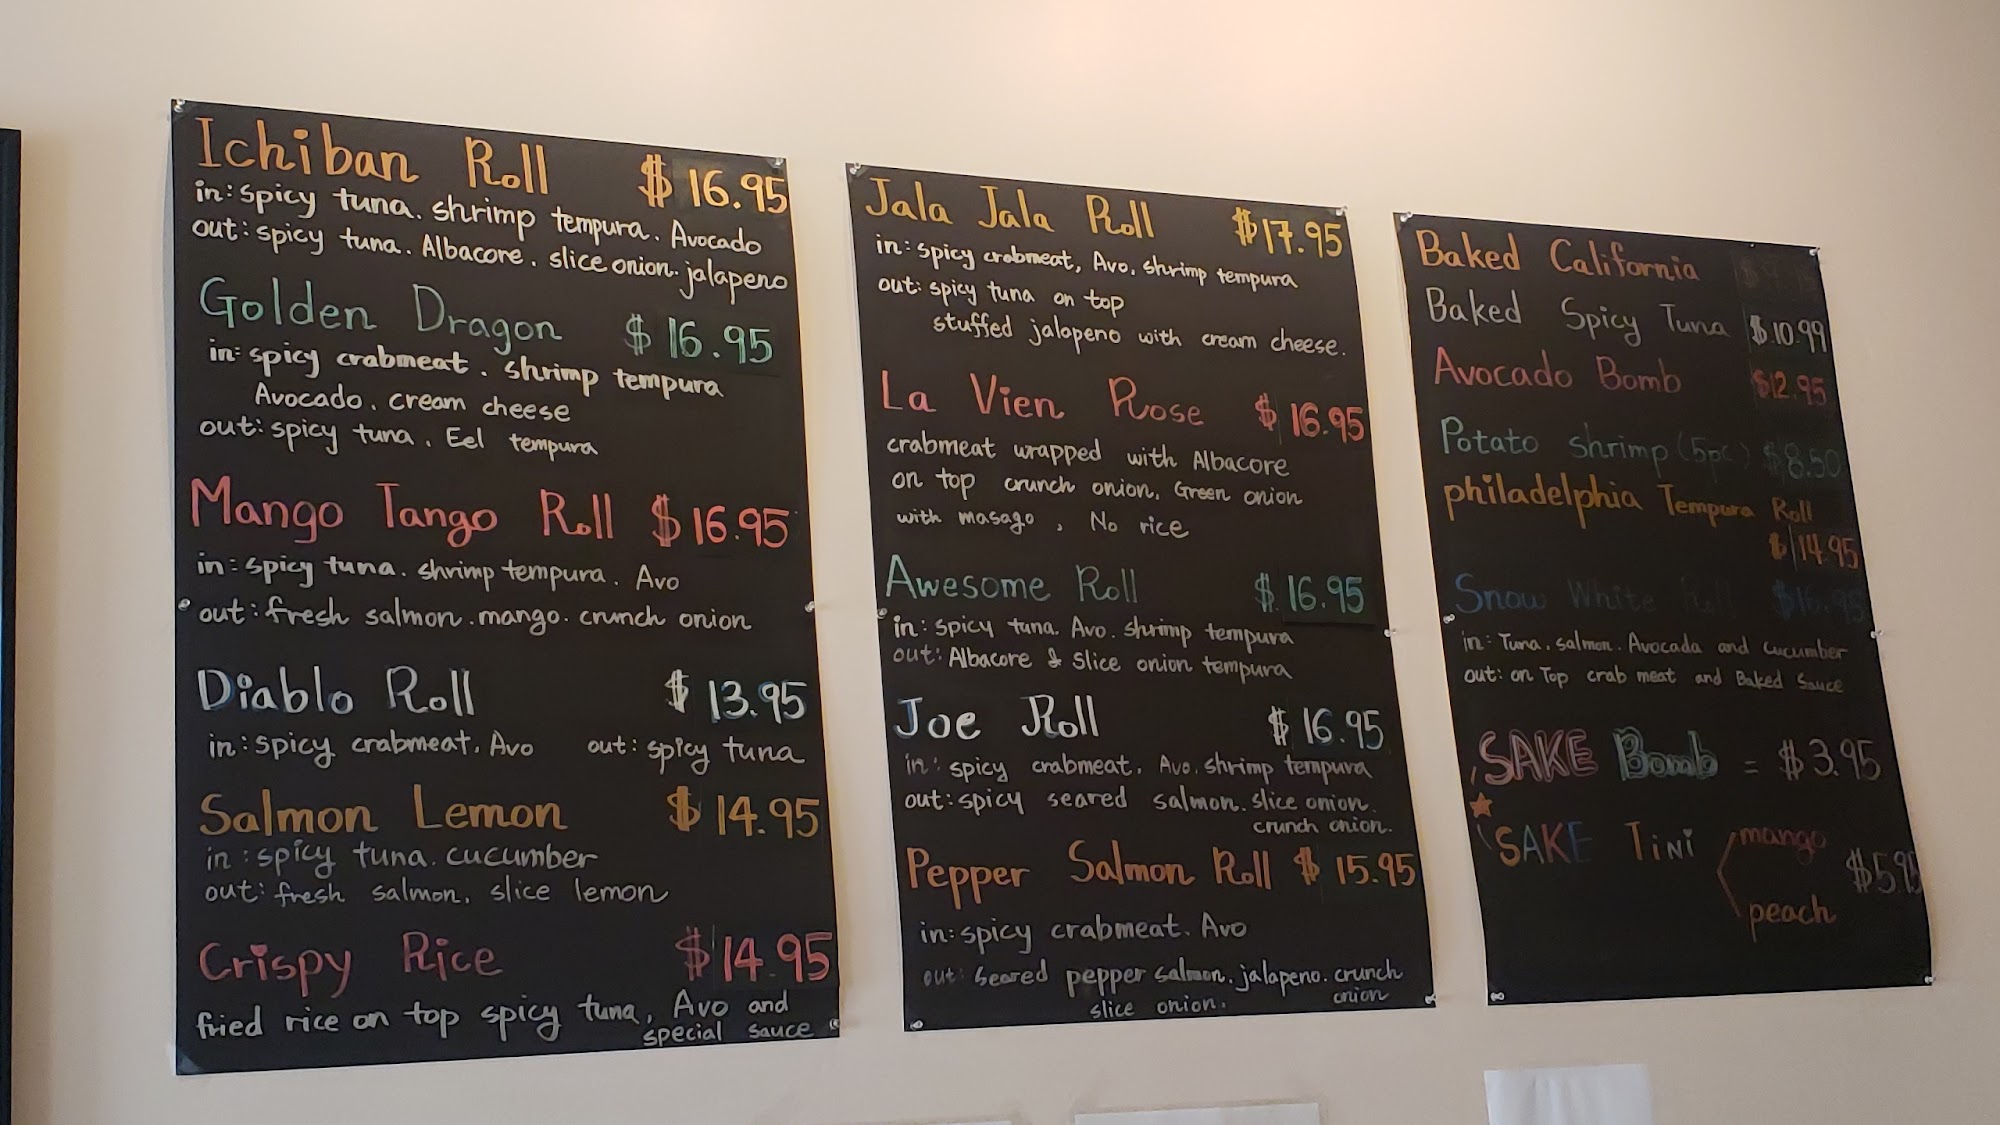 Ichiban Roll $16.95
in: spicy tuna. shrimp tempura. Avocado
out: spicy tuna. Albacore. slice onion. jalapeno
Golden Dragon $16.95
in: spicy crabmeat. shrimp tempura
Avocado. cream cheese
out: spicy tuna. Eel tempura
Mango Tango Roll $16.95
in: spicy tuna. shrimp tempura. Avo
out: fresh salmon. mango. crunch onion
Diablo Roll $13.95
in: spicy crabmeat. Avo out: spicy tuna
Salmon Lemon $14.95
in: spicy tuna. cucumber
out: fresh salmon, slice lemon
Crispy Rice $14.95
fried rice on top spicy tuna, Avo and
special sauce
Jala Jala Roll $17.95
in: spicy crabmeat, Avo. shrimp tempura
out: spicy tuna on top
stuffed jalapeno with cream cheese.
La Vien Rose $16.95
crabmeat wrapped with Albacore
on top crunch onion, Green onion
with masago, No rice
Awesome Roll $16.95
in: spicy tuna. Avo. shrimp tempura
out: Albacore & slice onion tempura
Joe Roll $16.95
in: spicy crabmeat. Avo. shrimp tempura
out: spicy seared salmon. slice onion.
crunch onion.
Pepper Salmon Roll $15.95
in: spicy crabmeat. Avo
out: Seared pepper salmon. jalapeno. crunch
slice onion. onion
Baked California
Baked Spicy Tuna $10.99
Avocado Bomb $12.95
Potato shrimp (5pc) $8.50
philadelphia Tempura Roll
$14.95
Snow White Roll $16.95
in: Tuna. salmon. Avocada and cucumber
out: on Top crab meat and Baked Sauce
SAKE Bomb = $3.95
SAKE Tini mango
$5.95
peach